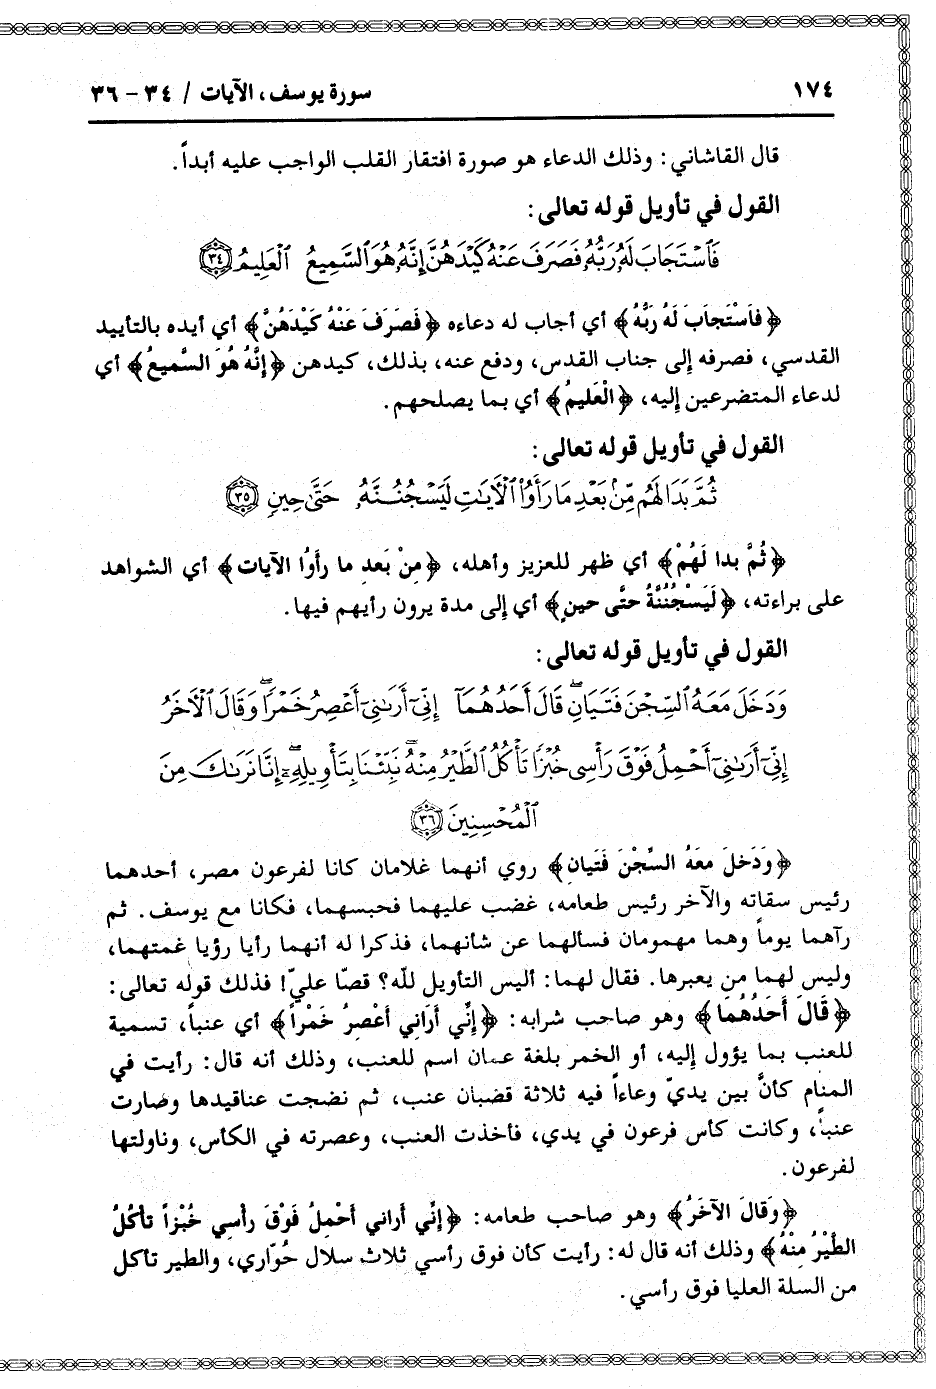 ١٧٤ سورة يوسف، الآيات / ٣٤ - ٣٦
قال القاشاني: وذلك الدعاء هو صورة افتقار القلب الواجب عليه أبداً.
القول في تأويل قوله تعالى:
فَٱسْتَجَابَ لَهُۥ رَبُّهُۥ فَصَرَفَ عَنْهُ كَيْدَهُنَّ إِنَّهُۥ هُوَ ٱلسَّمِيعُ ٱلْعَلِيمُ ٣٤
﴿فاسْتَجابَ لَهُ رَبُّهُ﴾ أي أجاب له دعاءه ﴿فَصَرَفَ عَنْهُ كَيْدَهُنَّ﴾ أي أيده بالتأييد
القدسي، فصرفه إلى جناب القدس، ودفع عنه، بذلك، كيدهن ﴿إِنَّهُ هُوَ السَّمِيعُ﴾ أي
لدعاء المتضرعين إليه، ﴿الْعَلِيمُ﴾ أي بما يصلحهم.
القول في تأويل قوله تعالى:
ثُمَّ بَدَا لَهُم مِّنۢ بَعْدِ مَا رَأَوُا۟ ٱلْـَٔايَـٰتِ لَيَسْجُنُنَّهُۥ حَتَّىٰ حِينٍ ٣٥
﴿ثُمَّ بدا لَهُمْ﴾ أي ظهر للعزيز وأهله، ﴿مِنْ بَعدِ ما رأَوُا الآيات﴾ أي الشواهد
على براءته، ﴿لَيَسْجُنُنَّهُ حتَّى حينٍ﴾ أي إلى مدة يرون رأيهم فيها.
القول في تأويل قوله تعالى:
وَدَخَلَ مَعَهُ ٱلسِّجْنَ فَتَيَانِ ۖ قَالَ أَحَدُهُمَآ إِنِّىٓ أَرَىٰنِىٓ أَعْصِرُ خَمْرًا ۖ وَقَالَ ٱلْـَٔاخَرُ
إِنِّىٓ أَرَىٰنِىٓ أَحْمِلُ فَوْقَ رَأْسِى خُبْزًا تَأْكُلُ ٱلطَّيْرُ مِنْهُ ۖ نَبِّئْنَا بِتَأْوِيلِهِۦٓ ۖ إِنَّا نَرَىٰكَ مِنَ
ٱلْمُحْسِنِينَ ٣٦
﴿وَدَخلَ معَهُ السِّجْنَ فَتَيان﴾ روي أنهما غلامان كانا لفرعون مصر، أحدهما
رئيس سقاته والآخر رئيس طعامه، غضب عليهما فحبسهما، فكانا مع يوسف. ثم
رآهما يوماً وهما مهمومان فسألهما عن شأنهما، فذكرا له أنهما رأيا رؤيا غمتهما،
وليس لهما من يعبرها. فقال لهما: أليس التأويل لله؟ قصّا عليّ! فذلك قوله تعالى:
﴿قَالَ أحَدُهُمَا﴾ وهو صاحب شرابه: ﴿إِنِّي أَرَاني أعْصرُ خَمْراً﴾ أي عنباً، تسمية
للعنب بما يؤول إليه، أو الخمر بلغة عمان اسم للعنب، وذلك أنه قال: رأيت في
المنام كأنَّ بين يديّ وعاءاً فيه ثلاثة قضبان عنب، ثم نضجت عناقيدها وصارت
عنباً، وكانت كأس فرعون في يدي، فأخذت العنب، وعصرته في الكأس، وناولتها
لفرعون.
﴿وَقالَ الآخَرُ﴾ وهو صاحب طعامه: ﴿إِنِّي أراني أحْمِلُ فَوْقَ رأسي خُبْزاً تأكُلُ
الطَّيْرُ مِنْهُ﴾ وذلك أنه قال له: رأيت كأن فوق رأسي ثلاث سلال حُوّاري، والطير تأكل
من السلة العليا فوق رأسي.